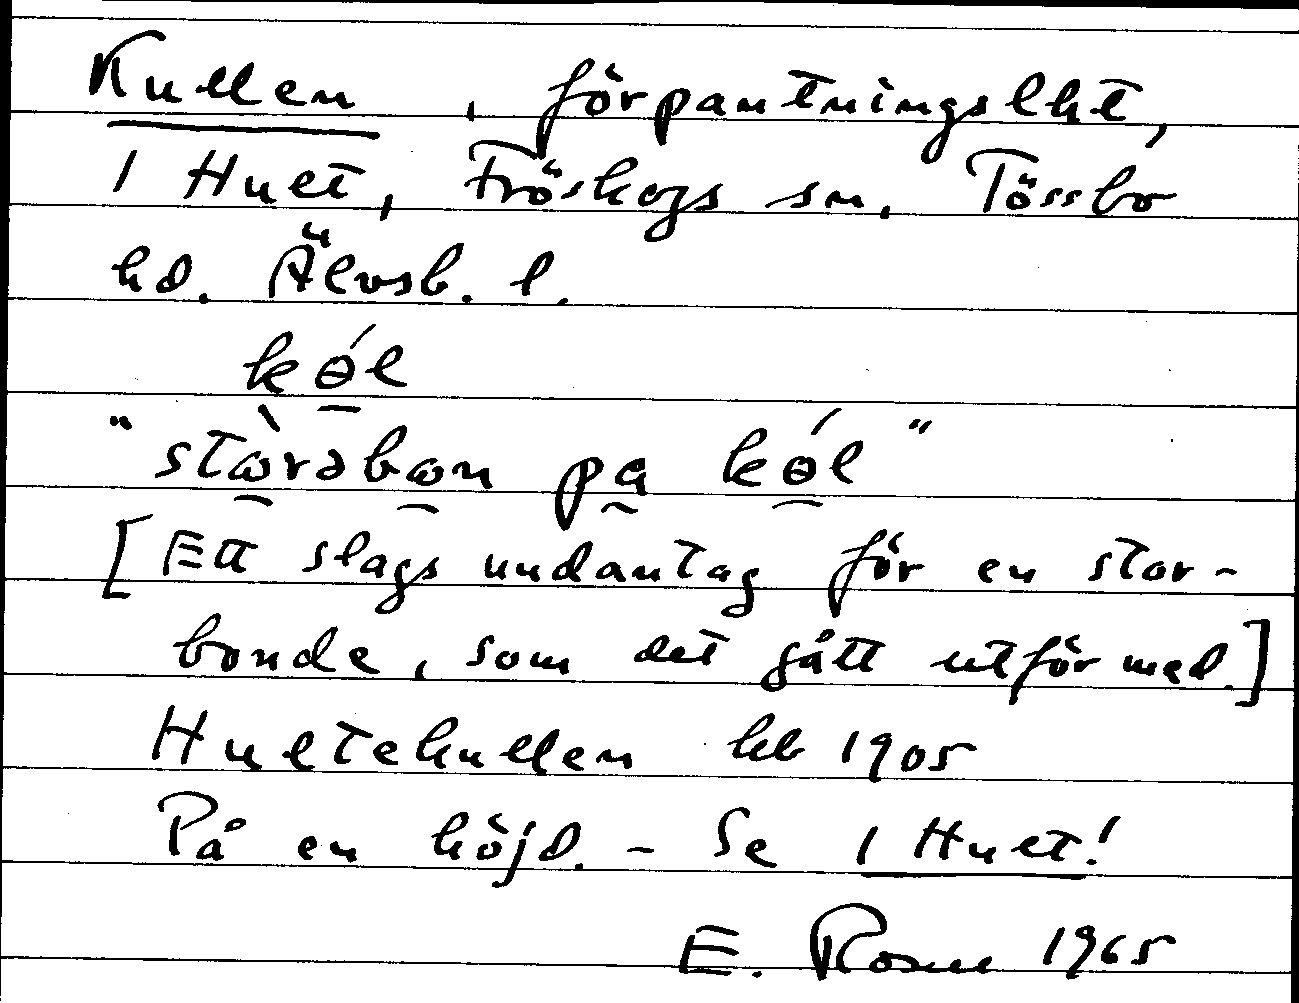 Kullen, förpantningslht,
1 Hult, Fröskogs sn. Tössbo
hd. Älvsb. l.
kǿl
"stòrabon på kǿl"
[Ett slags undantag för en stor-
bonde, som det gått utför med.]
Hultekullen hkb 1905
På en höjd. - Se 1 Hult!
E. Rosell 1965